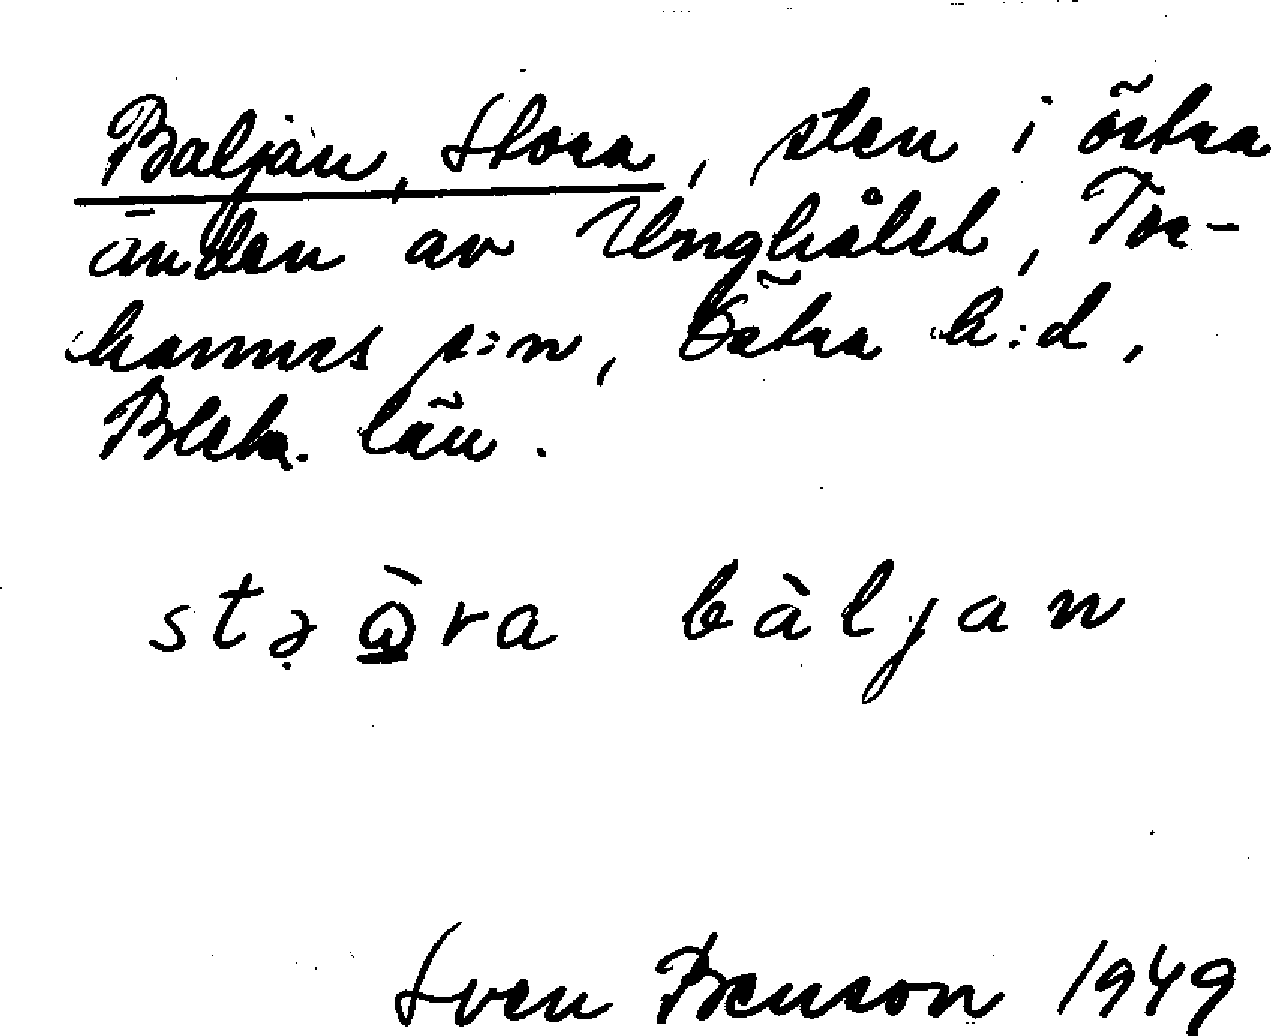 Baljan, Stora, sten i östra
änden av Unghålet, Tor-
hamns s:n, Östra h:d,
Blek. län.
stə̣ὼ̲ra bàljan
Sven Benson 1949